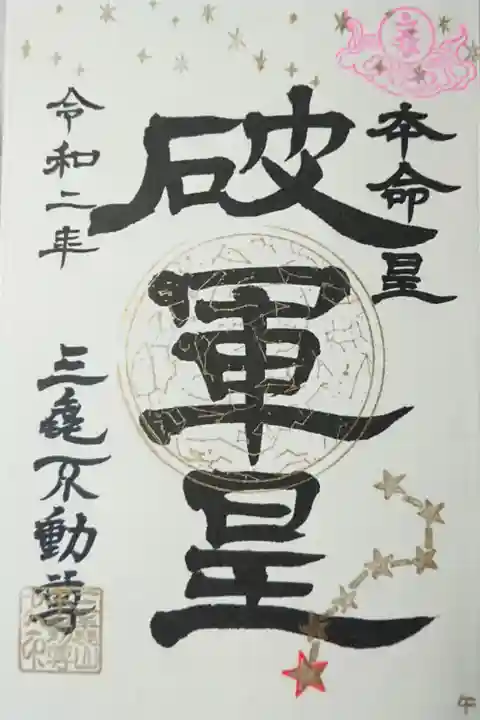 本命星
破軍星
令和二年
三亀不動尊
午